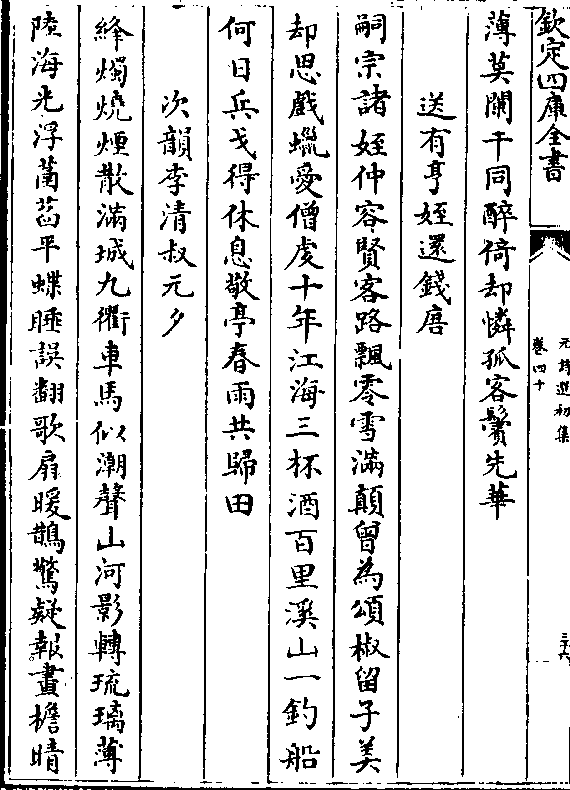 欽定四庫全書
元詩選初集
卷四十
三十六
薄莫闌干同醉倚却憐孤客鬢先華
送有亨姪還錢唐
嗣宗諸姪仲容賢客路飄零雪滿顛曾為頌椒留子美
却思戲蠟愛僧虔十年江海三杯酒百里溪山一釣船
何日兵戈得休息敬亭春雨共歸田
次韻李清叔元夕
絳燭燒煙散滿城九衢車馬似潮聲山河影轉琉璃薄
陸海光浮菡萏平蝶睡誤翻歌扇暖鵲驚疑報畫檐晴